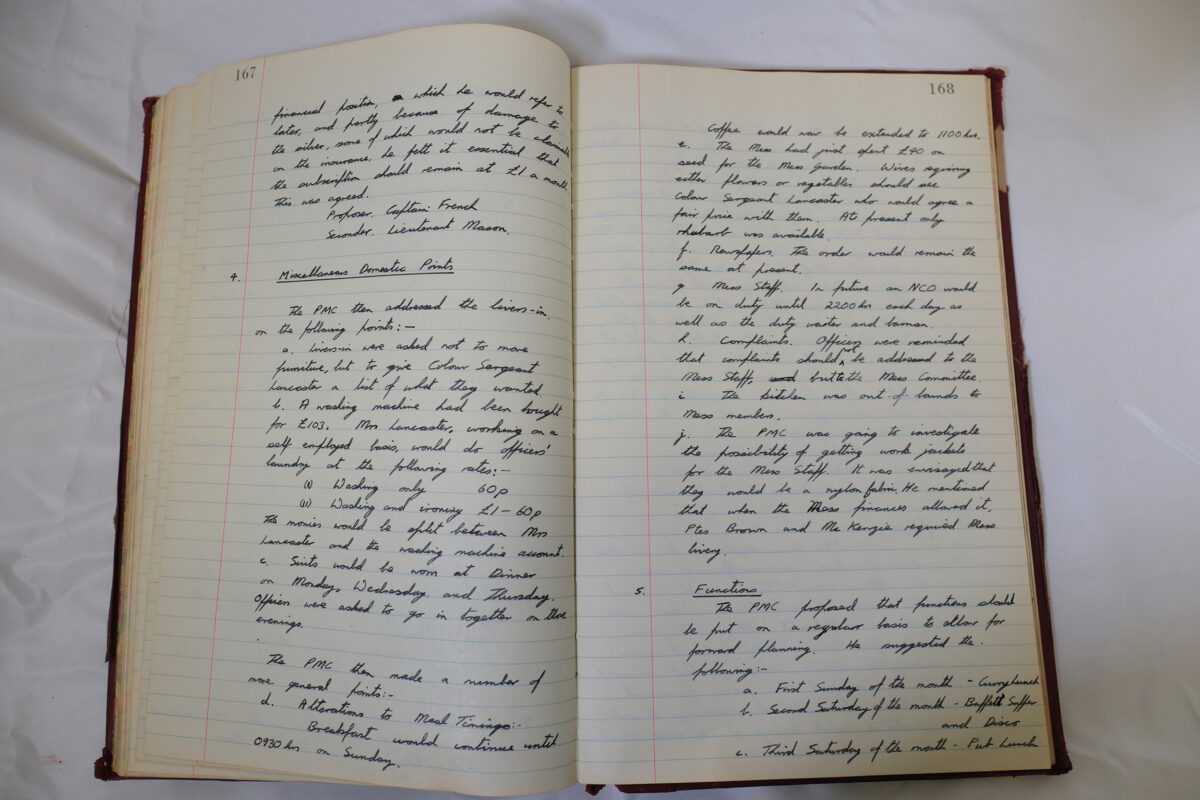 167
financial position, which he would refer to
later, and partly because of damage to
the silver, some of which would not be claimable
on the insurance, he felt it essential that
the subscription should remain at £1 a month
This was agreed.
Proposer. Captain French
Seconder. Lieutenant Mason.
4. Miscellaneous Domestic Points
The PMC then addressed the livers-in,
on the following points:-
a. Livers-in were asked not to move
furniture, but to give Colour Sergeant
Lancaster a list of what they wanted.
b. A washing machine had been bought
for £103. Mrs Lancaster, working on a
self employed basis, would do officers'
laundry at the following rates:-
(i) Washing only 60p
(ii) Washing and ironing £1-60p
The monies would be split between Mrs
Lancaster and the washing machine account.
c. Suits would be worn at Dinner
on Monday, Wednesday and Thursday.
Officers were asked to go in together on those
evenings.
The PMC then made a number of
more general points:-
d. Alterations to Meal Timings:-
Breakfast would continue until
0930 hrs on Sunday.
168
Coffee would now be extended to 1100 hrs.
e. The Mess had just spent £90 on
seed for the Mess Garden. Wives requiring
either flowers or vegetables should see
Colour Sergeant Lancaster who would agree a
fair price with them. At present only
rhubarb was available.
f. Newspapers. The order would remain the
same at present.
g Mess Staff. In future an NCO would
be on duty until 2200 hrs each day as
well as the duty waiter and barman.
h. Complaints. Officers were reminded
that complaints should not be addressed to the
Mess Staff, but to the Mess Committee.
i The kitchen was out-of-bounds to
Mess members.
j. The PMC was going to investigate
the possibility of getting work jackets
for the Mess Staff. It was envisaged that
they would be a nylon fabric. He mentioned
that when the Mess finances allowed it,
Ptes Brown and Mc Kenzie required Mess
livery.
5. Functions
The PMC proposed that functions should
be put on a regular basis to allow for
forward planning. He suggested the
following:-
a. First Sunday of the month - Curry Lunch
b. Second Saturday of the month - Buffett Supper
and Disco
c. Third Saturday of the month - Pub Lunch